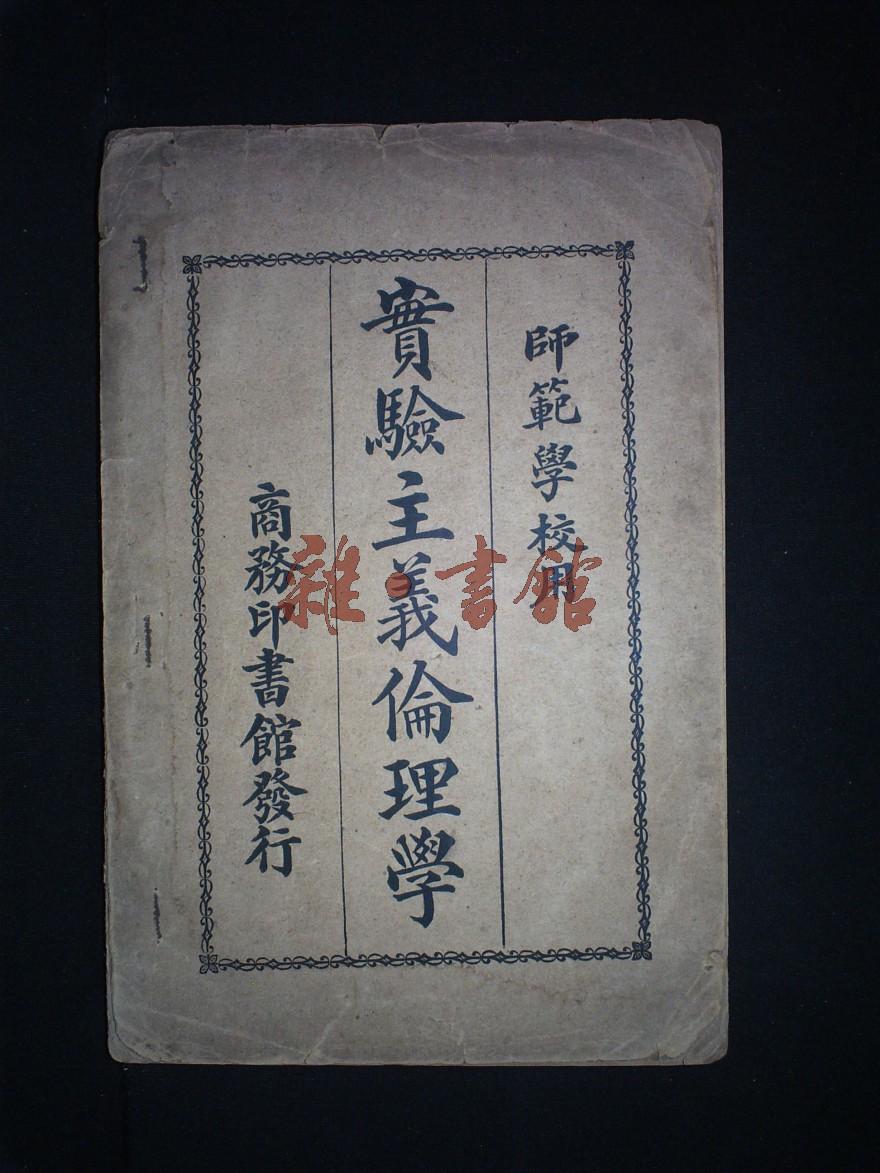 師範學校用
實驗主義倫理學
商務印書館發行
雜·書館